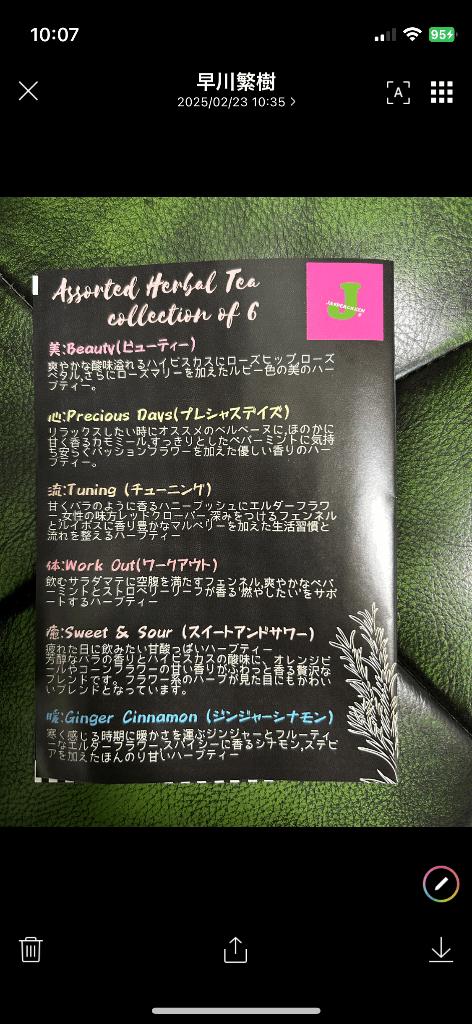 10:07
95
早川繁樹
2025/02/23 10:35
A
Assorted Herbal Tea
collection of 6
J
美:Beauty(ビューティー)
爽やかな酸味溢れるハイビスカスにローズヒップ,ローズ
ペタル,さらにローズマリーを加えたルビー色の美のハー
ブティー。
心:Precious Days(プレシャスデイズ)
リラックスしたい時にオススメのベルベーヌに,ほのかに
甘く香るカモミール,すっきりとしたペパーミントに気持
ち安らぐパッションフラワーを加えた優しい香りのハー
ブティー。
流:Tuning (チューニング)
甘くバラのように香るハニーブッシュにエルダーフラワ
ー,女性の味方レッドクローバー,深みをつけるフェンネル
とルイボスに香り豊かなマルベリーを加えた生活習慣と
流れを整えるハーブティー
体:Work Out(ワークアウト)
飲むサラダマテに空腹を満たすフェンネル,爽やかなペパ
ーミントとストロベリーリーフが香る'燃やしたい'をサポ
ートするハーブティー
癒:Sweet & Sour (スイートアンドサワー)
疲れた日に飲みたい甘酸っぱいハーブティー
芳醇なバラの香りとハイビスカスの酸味に、オレンジピ
ールやコーンフラワーの甘い香りがふわっと香る贅沢な
ブレンドです。フラワー系のハーブが見た目にもかわい
いブレンドとなっています。
暖:Ginger Cinnamon (ジンジャーシナモン)
寒く感じる時期に暖かさを運ぶジンジャーとフルーティ
ーなエルダーフラワー,スパイシーに香るシナモン,ステビ
アを加えたほんのり甘いハーブティー